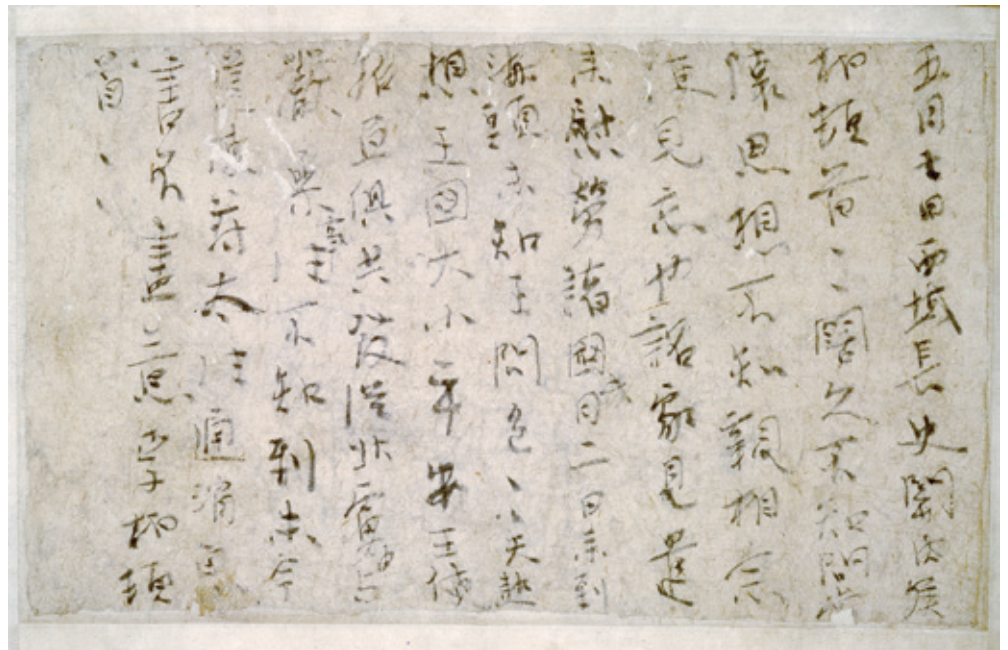 五月七日西域長史關内侯
柏頓首〃闊久不知問常
懷思想不知親相念
便見忘也詔家見遣
來慰勞諸國此月二日來到
海頭未知王問邑〃天熱
想王國大小平安王使
招亘俱共發從北虜中与
嚴參事往不知到未今
遣使苻太往通消息
書不盡意李柏頓
首〃〃